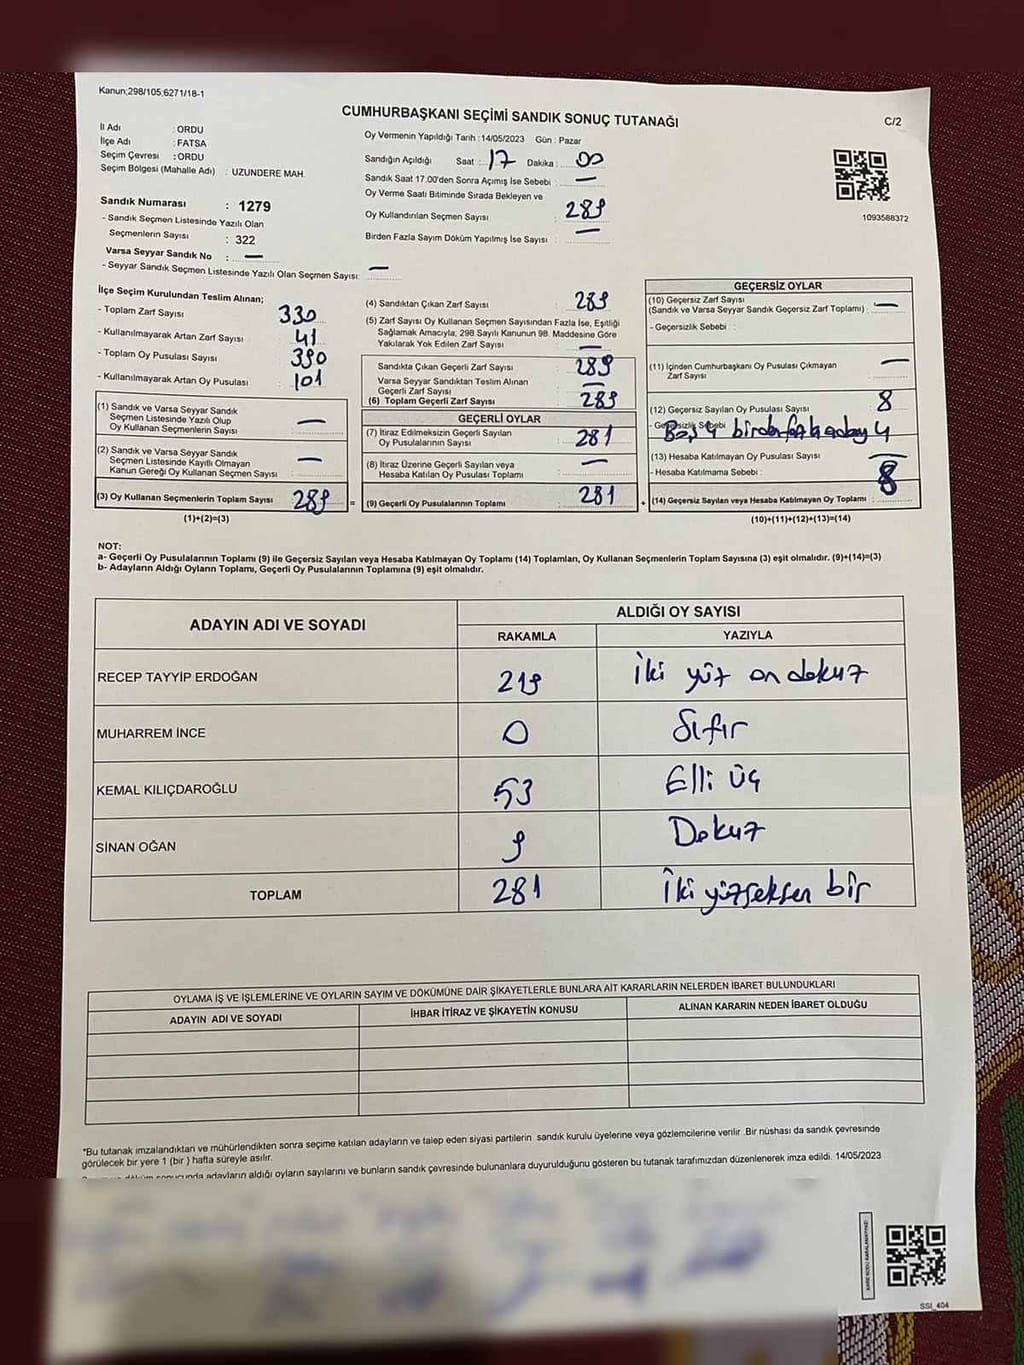 Kanun;298/105;6271/18-1
CUMHURBAŞKANI SEÇİMİ SANDIK SONUÇ TUTANAĞI
C/2
İl Adı : ORDU
İlçe Adı : FATSA
Seçim Çevresi : ORDU
Seçim Bölgesi (Mahalle Adı) : UZUNDERE MAH.
Sandık Numarası : 1279
- Sandık Seçmen Listesinde Yazılı Olan
Seçmenlerin Sayısı : 322
Varsa Seyyar Sandık No : —
- Seyyar Sandık Seçmen Listesinde Yazılı Olan Seçmen Sayısı: —
Oy Vermenin Yapıldığı Tarih : 14/05/2023 Gün : Pazar
Sandığın Açıldığı Saat : 17 Dakika : 00
Sandık Saat 17.00'den Sonra Açımış İse Sebebi : —
Oy Verme Saati Bitiminde Sırada Bekleyen ve
Oy Kullandırılan Seçmen Sayısı 289
Birden Fazla Sayım Döküm Yapılmış İse Sayısı : —
1093588372
İlçe Seçim Kurulundan Teslim Alınan;
- Toplam Zarf Sayısı 330
- Kullanılmayarak Artan Zarf Sayısı 41
- Toplam Oy Pusulası Sayısı 390
- Kullanılmayarak Artan Oy Pusulası 101
(1) Sandık ve Varsa Seyyar Sandık
Seçmen Listesinde Yazılı Olup
Oy Kullanan Seçmenlerin Sayısı —
(2) Sandık ve Varsa Seyyar Sandık
Seçmen Listesinde Kayıtlı Olmayan
Kanun Gereği Oy Kullanan Seçmen Sayısı —
(3) Oy Kullanan Seçmenlerin Toplam Sayısı 289 =
(1)+(2)=(3)
(4) Sandıktan Çıkan Zarf Sayısı 289
(5) Zarf Sayısı Oy Kullanan Seçmen Sayısından Fazla İse, Eşitliği
Sağlamak Amacıyla, 298 Sayılı Kanunun 98. Maddesine Göre
Yakılarak Yok Edilen Zarf Sayısı —
Sandıkta Çıkan Geçerli Zarf Sayısı 289
Varsa Seyyar Sandıktan Teslim Alınan
Geçerli Zarf Sayısı —
(6) Toplam Geçerli Zarf Sayısı 289
GEÇERLİ OYLAR
(7) İtiraz Edilmeksizin Geçerli Sayılan
Oy Pusulasının Sayısı 281
(8) İtiraz Üzerine Geçerli Sayılan veya
Hesaba Katılan Oy Pusulası Toplamı —
(9) Geçerli Oy Pusulalarının Toplamı 281 +
GEÇERSİZ OYLAR
(10) Geçersiz Zarf Sayısı
(Sandık ve Varsa Seyyar Sandık Geçersiz Zarf Toplamı) : —
- Geçersizlik Sebebi :
(11) İçinden Cumhurbaşkanı Oy Pusulası Çıkmayan
Zarf Sayısı —
(12) Geçersiz Sayılan Oy Pusulası Sayısı 8
- Geçersizlik Sebebi Boş 4 birden fazla aday 4
(13) Hesaba Katılmayan Oy Pusulası Sayısı —
- Hesaba Katılmama Sebebi :
(14) Geçersiz Sayılan veya Hesaba Katılmayan Oy Toplamı : 8
(10)+(11)+(12)+(13)=(14)
NOT:
a- Geçerli Oy Pusulalarının Toplamı (9) ile Geçersiz Sayılan veya Hesaba Katılmayan Oy Toplamı (14) Toplamları, Oy Kullanan Seçmenlerin Toplam Sayısına (3) eşit olmalıdır. (9)+(14)=(3)
b- Adayların Aldığı Oyların Toplamı, Geçerli Oy Pusulalarının Toplamına (9) eşit olmalıdır.
ADAYIN ADI VE SOYADI
ALDIĞI OY SAYISI
RAKAMLA YAZIYLA
RECEP TAYYİP ERDOĞAN 219 İki yüz on dokuz
MUHARREM İNCE 0 Sıfır
KEMAL KILIÇDAROĞLU 53 Elli üç
SİNAN OĞAN 9 Dokuz
TOPLAM 281 İki yüz seksen bir
OYLAMA İŞ VE İŞLEMLERİNE VE OYLARIN SAYIM VE DÖKÜMÜNE DAİR ŞİKAYETLERLE BUNLARA AİT KARARLARIN NELERDEN İBARET BULUNDUKLARI
ADAYIN ADI VE SOYADI İHBAR İTİRAZ VE ŞİKAYETİN KONUSU ALINAN KARARIN NEDEN İBARET OLDUĞU
*Bu tutanak imzalandıktan ve mühürlendikten sonra seçime katılan adayların ve talep eden siyasi partilerin sandık kurulu üyelerine veya gözlemcilerine verilir .Bir nüshası da sandık çevresinde
görülecek bir yere 1 (bir ) hafta süreyle asılır.
adayların aldığı oyların sayılarını ve bunların sandık çevresinde bulunanlara duyurulduğunu gösteren bu tutanak tarafımızdan düzenlenerek imza edildi. 14/05/2023
KARE KODU KARALAMAYINIZ!
SSI_404